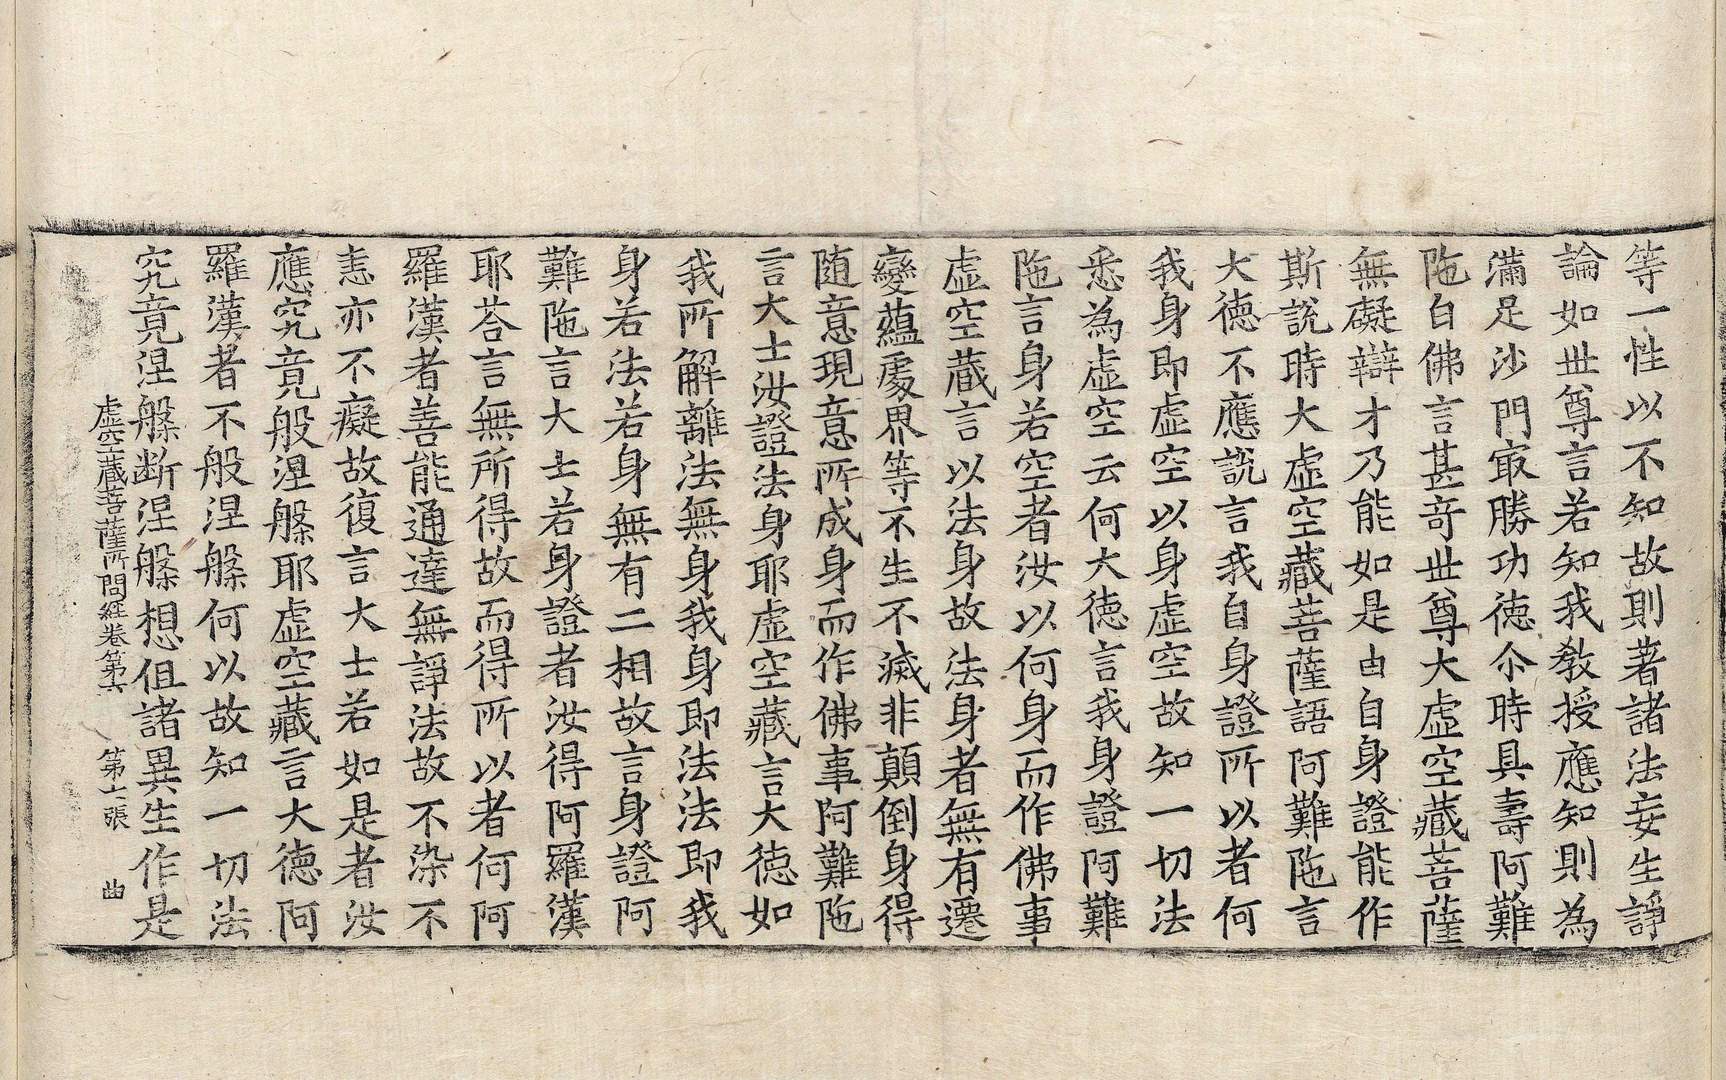 等一性以不知故則著諸法妄生諍
論如世尊言若知我教授應知則為
滿足沙門最勝功徳尒時具壽阿難
陁白佛言甚竒世尊大虛空藏菩薩
無礙辯才乃能如是由自身證能作
斯說時大虛空藏菩薩語阿難陁言
大徳不應說言我自身證所以者何
我身即虛空以身虛空故知一切法
悉為虛空云何大徳言我身證阿難
陁言身若空者汝以何身而作佛事
虛空藏言以法身故法身者無有遷
變蘊處界等不生不滅非顛倒身得
随意現意所成身而作佛事阿難陁
言大士汝證法身耶虛空藏言大徳如
我所解離法無身我身即法法即我
身若法若身無有二相故言身證阿
難陁言大士若身證者汝得阿羅漢
耶荅言無所得故而得所以者何阿
羅漢者善能通達無諍法故不染不
恚亦不癡故復言大士若如是者汝
應究竟般涅槃耶虛空藏言大徳阿
羅漢者不般涅槃何以故知一切法
究竟涅槃断涅槃想但諸異生作是
虛空藏菩薩所問經卷第六 第七張 曲